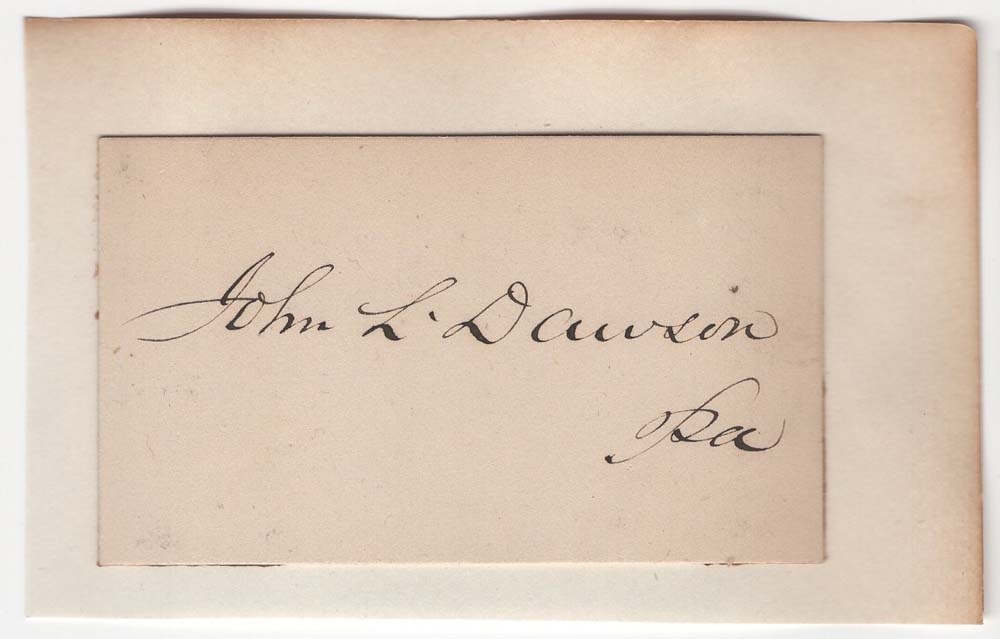 John L. Dawson
Pa